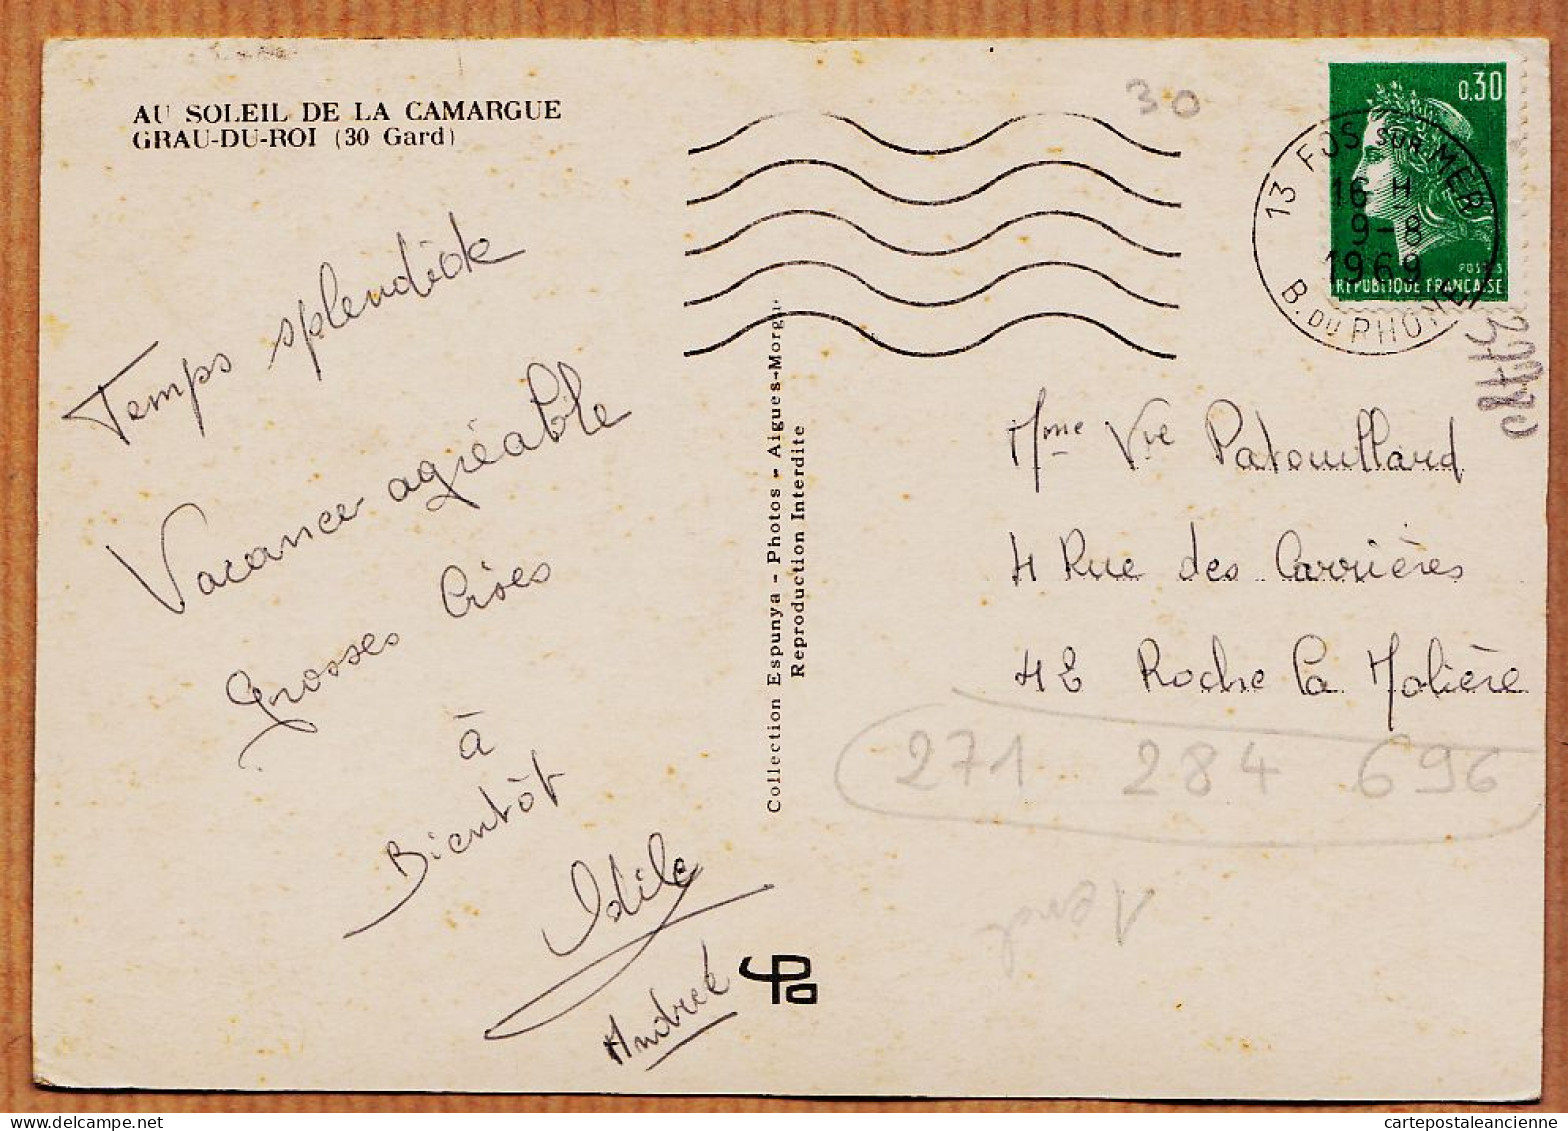 AU SOLEIL DE LA CAMARGUE
GRAU-DU-ROI (30 Gard)
Temps splendide
Vacance agréable
Grosses Bises
à
Bientôt
Odile
Andrée
Collection Espunya - Photos - Aigues-Mortes
Reproduction Interdite
30
0,30
POSTES
REPUBLIQUE FRANCAISE
13 FOS SUR MER
16 H
9-8
1969
B. DU RHONE
Mme Vve Patouillard
4 Rue des Carrières
42 Roche la Molière
271 284 696
cartepostaleancienne.com